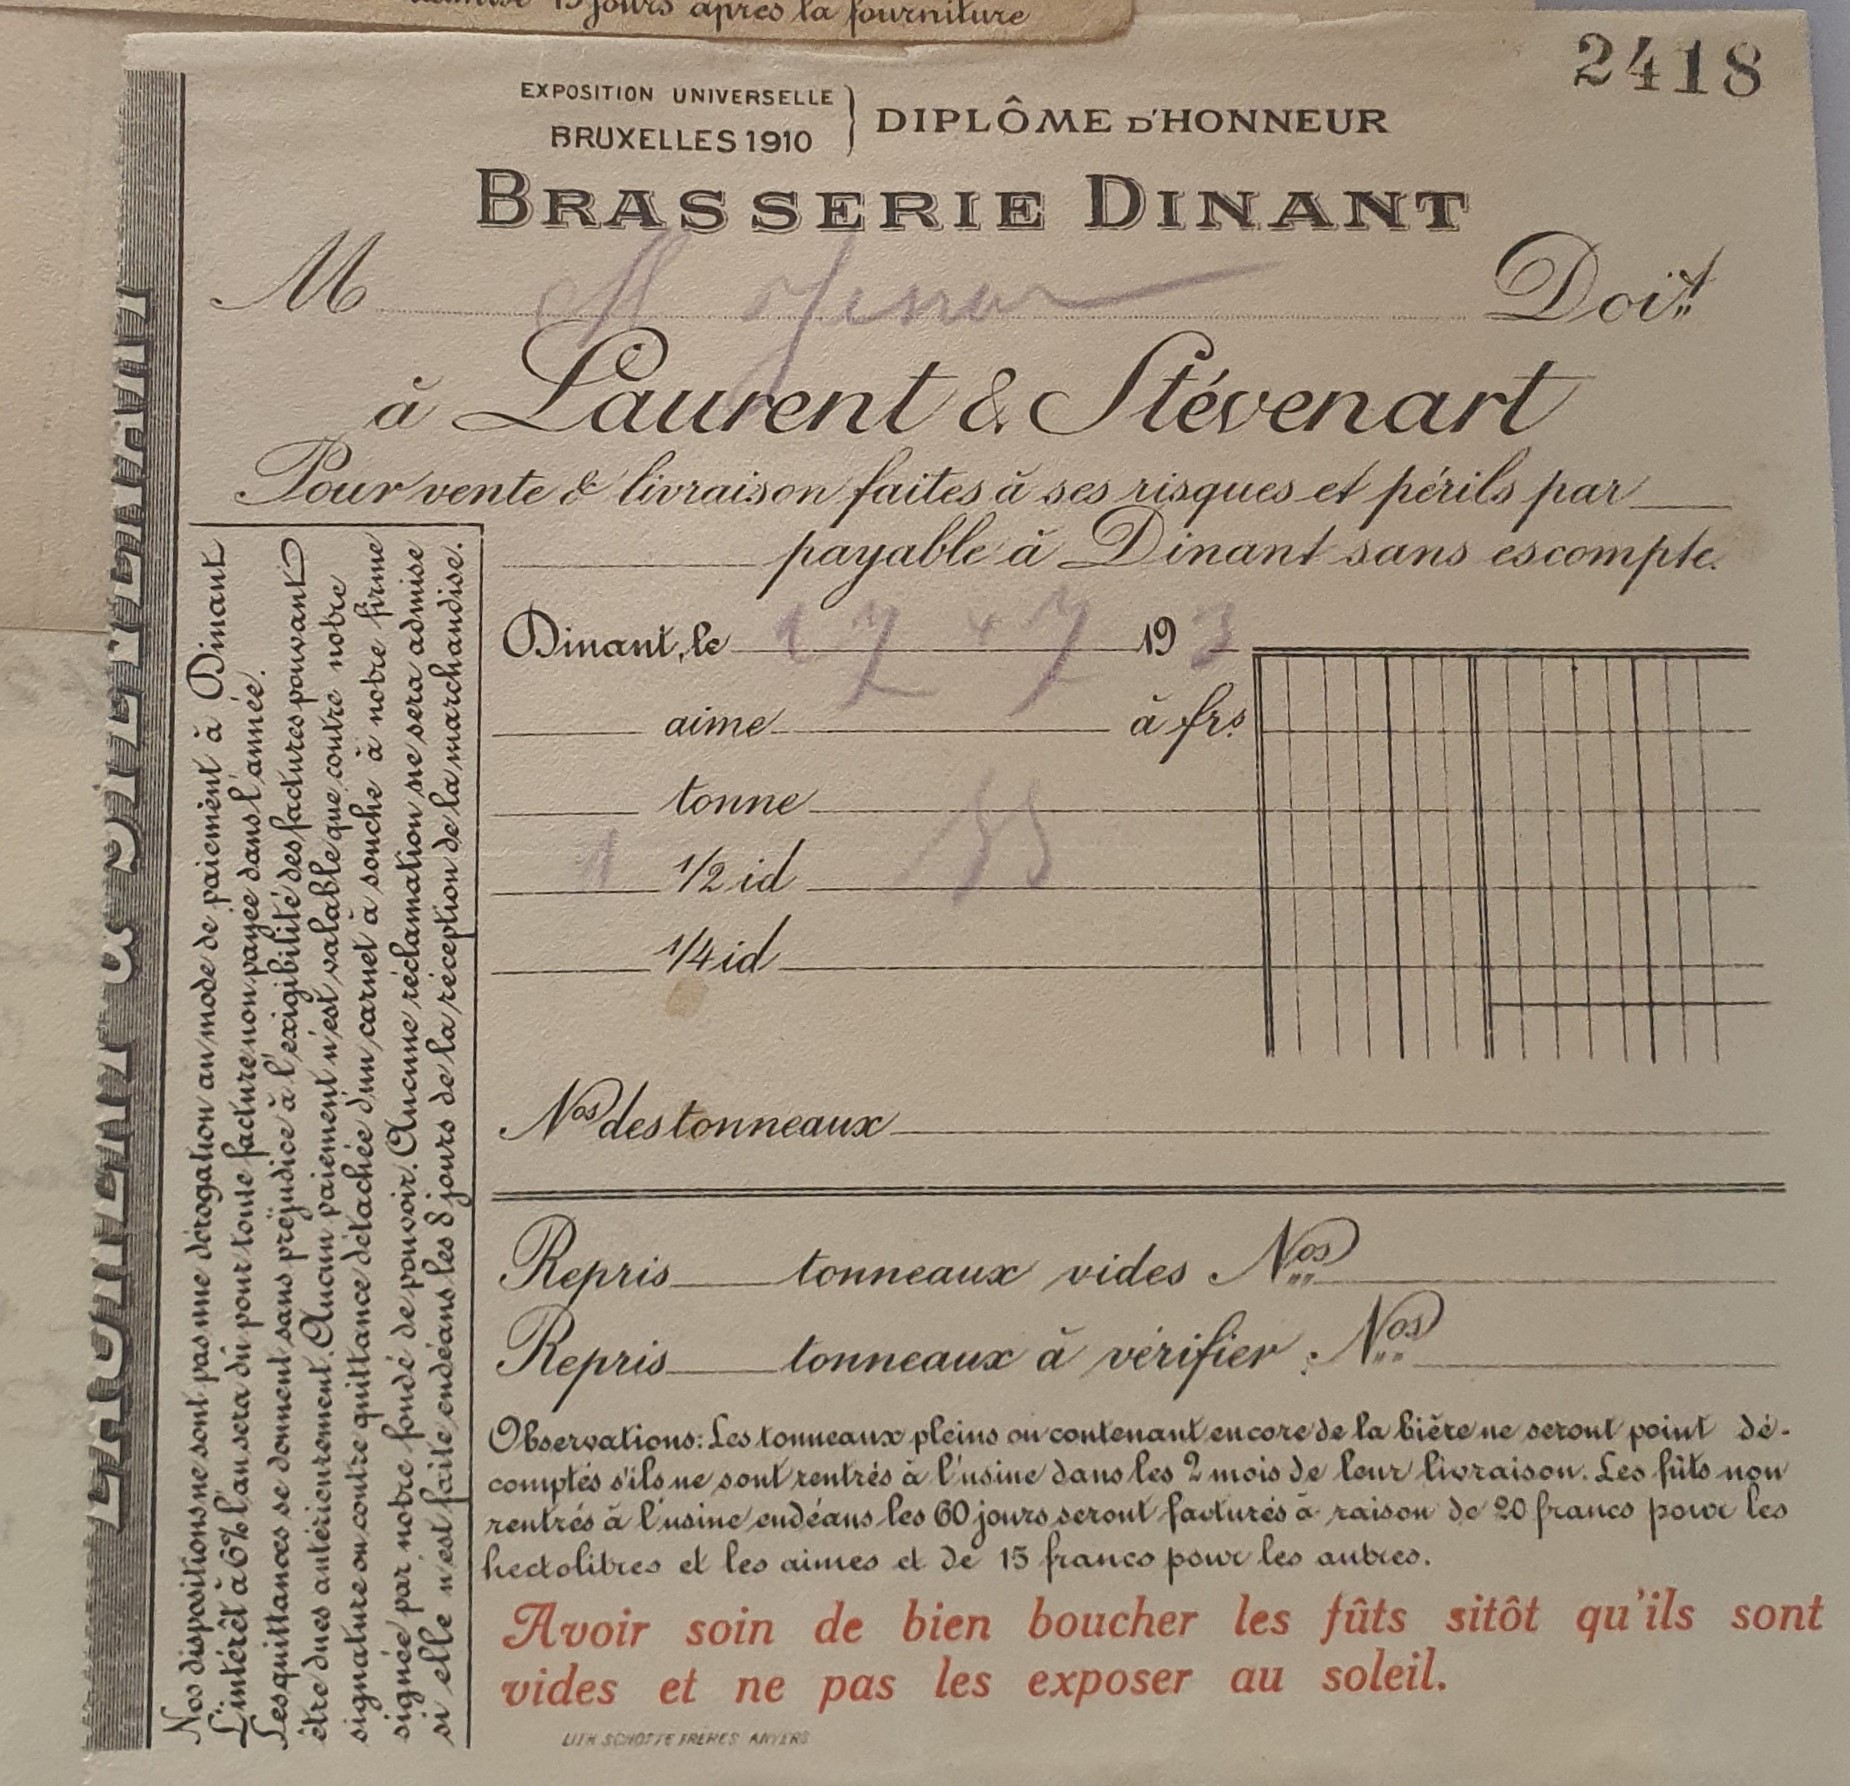 15 jours après la fourniture
2418
EXPOSITION UNIVERSELLE
BRUXELLES 1910
DIPLÔME D'HONNEUR
BRASSERIE DINANT
M Doit
à Laurent & Stévenart
Pour vente & livraison faites à ses risques et périls par
payable à Dinant sans escompte.
Dinant, le 27 7 193
aime à frs
tonne
1 1/2 id 55
1/4 id
Nos des tonneaux
Repris tonneaux vides Nos
Repris tonneaux à vérifier : Nos
Observations: Les tonneaux pleins ou contenant encore de la bière ne seront point dé-
comptés s'ils ne sont rentrés à l'usine dans les 2 mois de leur livraison. Les fûts non
rentrés à l'usine endéans les 60 jours seront facturés à raison de 20 francs pour les
hectolitres et les aimes et de 15 francs pour les autres.
Avoir soin de bien boucher les fûts sitôt qu'ils sont
vides et ne pas les exposer au soleil.
LITH. SCHOTTE FRÈRES ANVERS
Nos dispositions ne sont pas une dérogation au mode de paiement à Dinant
L'intérêt à 6% l'an sera dû pour toute facture non payée dans l'année.
Les quittances se donnent sans préjudice à l'exigibilité des factures pouvant
être dues antérieurement. Aucun paiement n'est valable que contre notre
signature ou contre quittance détachée d'un carnet à souche à notre firme
signée par notre fondé de pouvoir. Aucune réclamation ne sera admise
si elle n'est faite endéans les 8 jours de la réception de la marchandise.